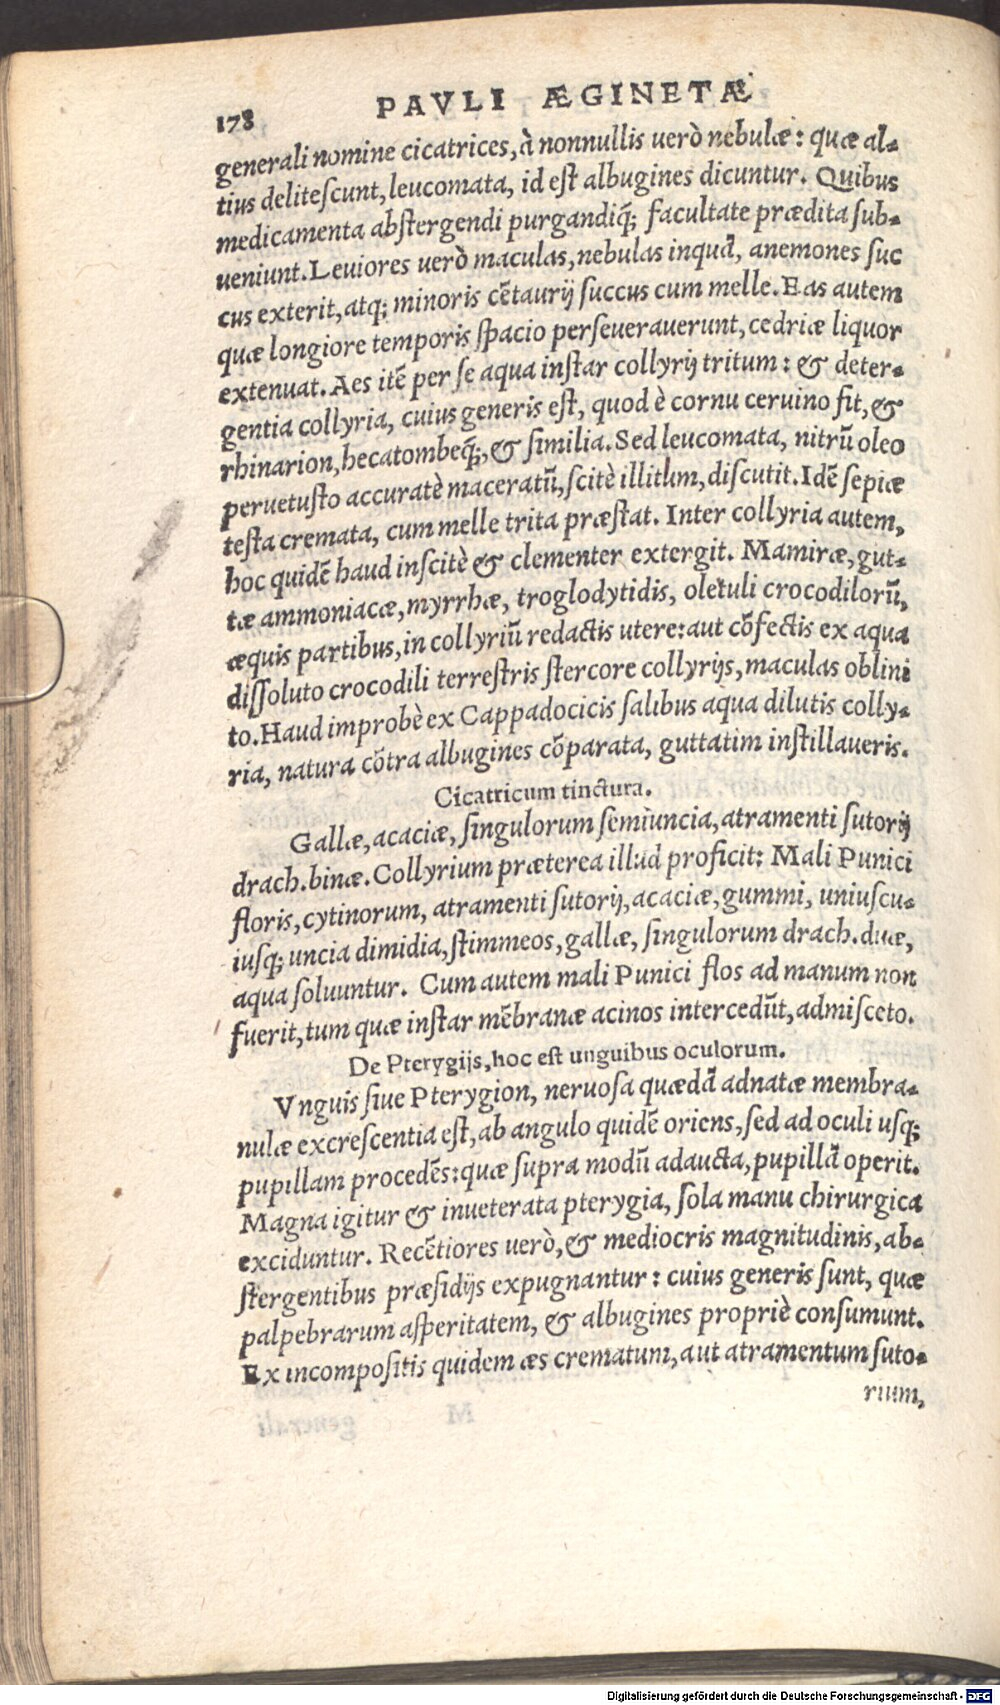 178 PAVLI ÆGINETÆ
generali nomine cicatrices, à nonnullis uerò nebulæ: quæ al-
tius deliteſcunt, leucomata, id eſt albugines dicuntur. Quibus
medicamenta abſtergendi purgandiq́; facultate prædita ſub-
ueniunt. Leuiores uerò maculas, nebulas inquã, anemones ſuc
cus exterit, atq; minoris cẽtaurij ſuccus cum melle. Eas autem
quæ longiore temporis ſpacio perſeuerauerunt, cedriæ liquor
extenuat. Aes itẽ per ſe aqua inſtar collyrij tritum: & deter-
gentia collyria, cuius generis eſt, quod è cornu ceruino fit, &
rhinarion, hecatombeq́;, & ſimilia. Sed leucomata, nitrũ oleo
peruetuſto accuratè maceratũ, ſcitè illitum, diſcutit. Idẽ ſepiæ
teſta cremata, cum melle trita præſtat. Inter collyria autem,
hoc quidẽ haud inſcitè & clementer extergit. Mamiræ, gut-
tæ ammoniacæ, myrrhæ, troglodytidis, oletuli crocodilorũ,
æquis partibus, in collyriũ redactis utere: aut cõfectis ex aqua
diſſoluto crocodili terreſtris ſtercore collyrijs, maculas oblini
to. Haud improbè ex Cappadocicis ſalibus aqua dilutis colly-
ria, natura cõtra albugines cõparata, guttatim inſtillaueris.
Cicatricum tinctura.
Gallæ, acaciæ, ſingulorum ſemiuncia, atramenti ſutorij
drach. binæ. Collyrium præterea illud proficit: Mali Punici
floris, cytinorum, atramenti ſutorij, acaciæ, gummi, uniuſcu-
iuſq; uncia dimidia, ſtimmeos, gallæ, ſingulorum drach. duæ,
aqua ſoluuntur. Cum autem mali Punici flos ad manum non
fuerit, tum quæ inſtar mẽbranæ acinos intercedũt, admiſceto.
De Pterygijs, hoc est unguibus oculorum.
Vnguis ſiue Pterygion, neruoſa quædã adnatæ membra-
nulæ excreſcentia eſt, ab angulo quidẽ oriens, ſed ad oculi uſq;
pupillam procedẽs: quæ ſupra modũ adaucta, pupillã operit.
Magna igitur & inueterata pterygia, ſola manu chirurgica
exciduntur. Recẽtiores uerò, & mediocris magnitudinis, ab-
ſtergentibus præſidijs expugnantur: cuius generis ſunt, quæ
palpebrarum aſperitatem, & albugines propriè conſumunt.
Ex incompoſitis quidem æs crematum, aut atramentum ſuto-
rium,
Digitalisierung gefördert durch die Deutsche Forschungsgemeinschaft - DFG